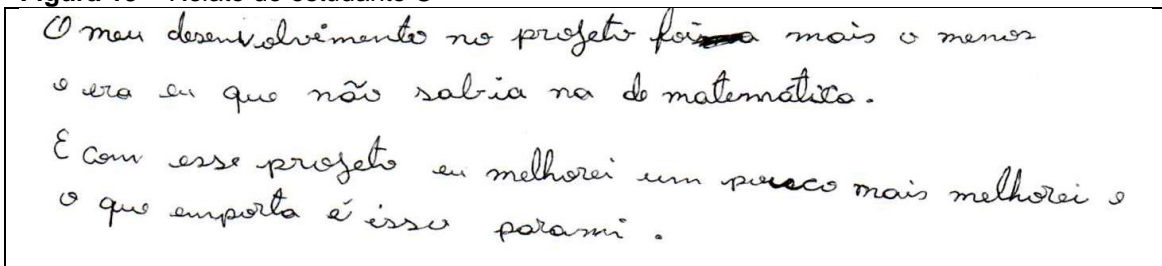 O meu desenvolvimento no projeto foi mais o menos
e era eu que não sabia na de matemática.
E com esse projeto eu melhorei um pouco mais melhorei e
o que emporta é isso parami.